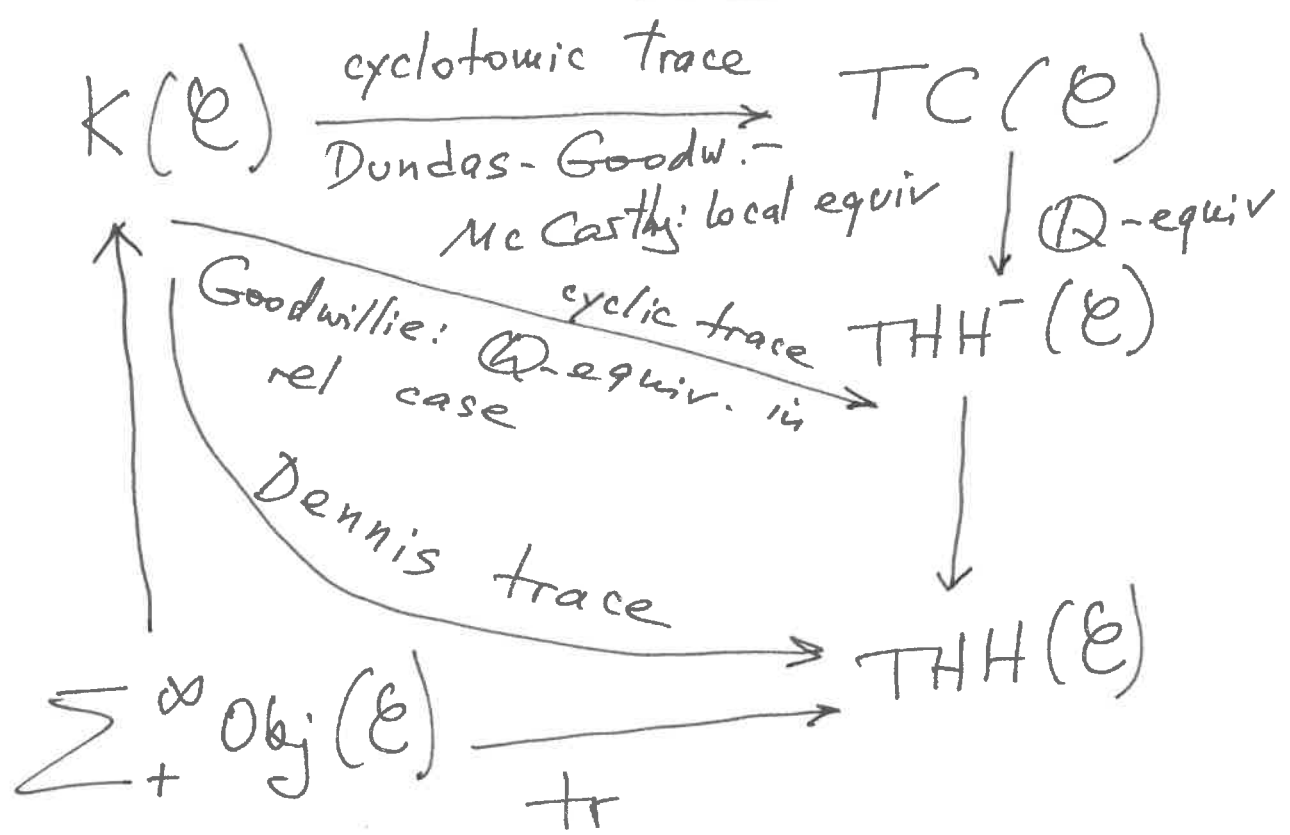 cyclotomic trace
K(𝒞) TC(𝒞)
Dundas-Goodw.-
Mc Carthy: local equiv
ℚ-equiv
Goodwillie: ℚ-equiv. in
rel case
cyclic trace
THH⁻(𝒞)
Dennis trace
THH(𝒞)
Σ₊^∞ Obj(𝒞)
tr